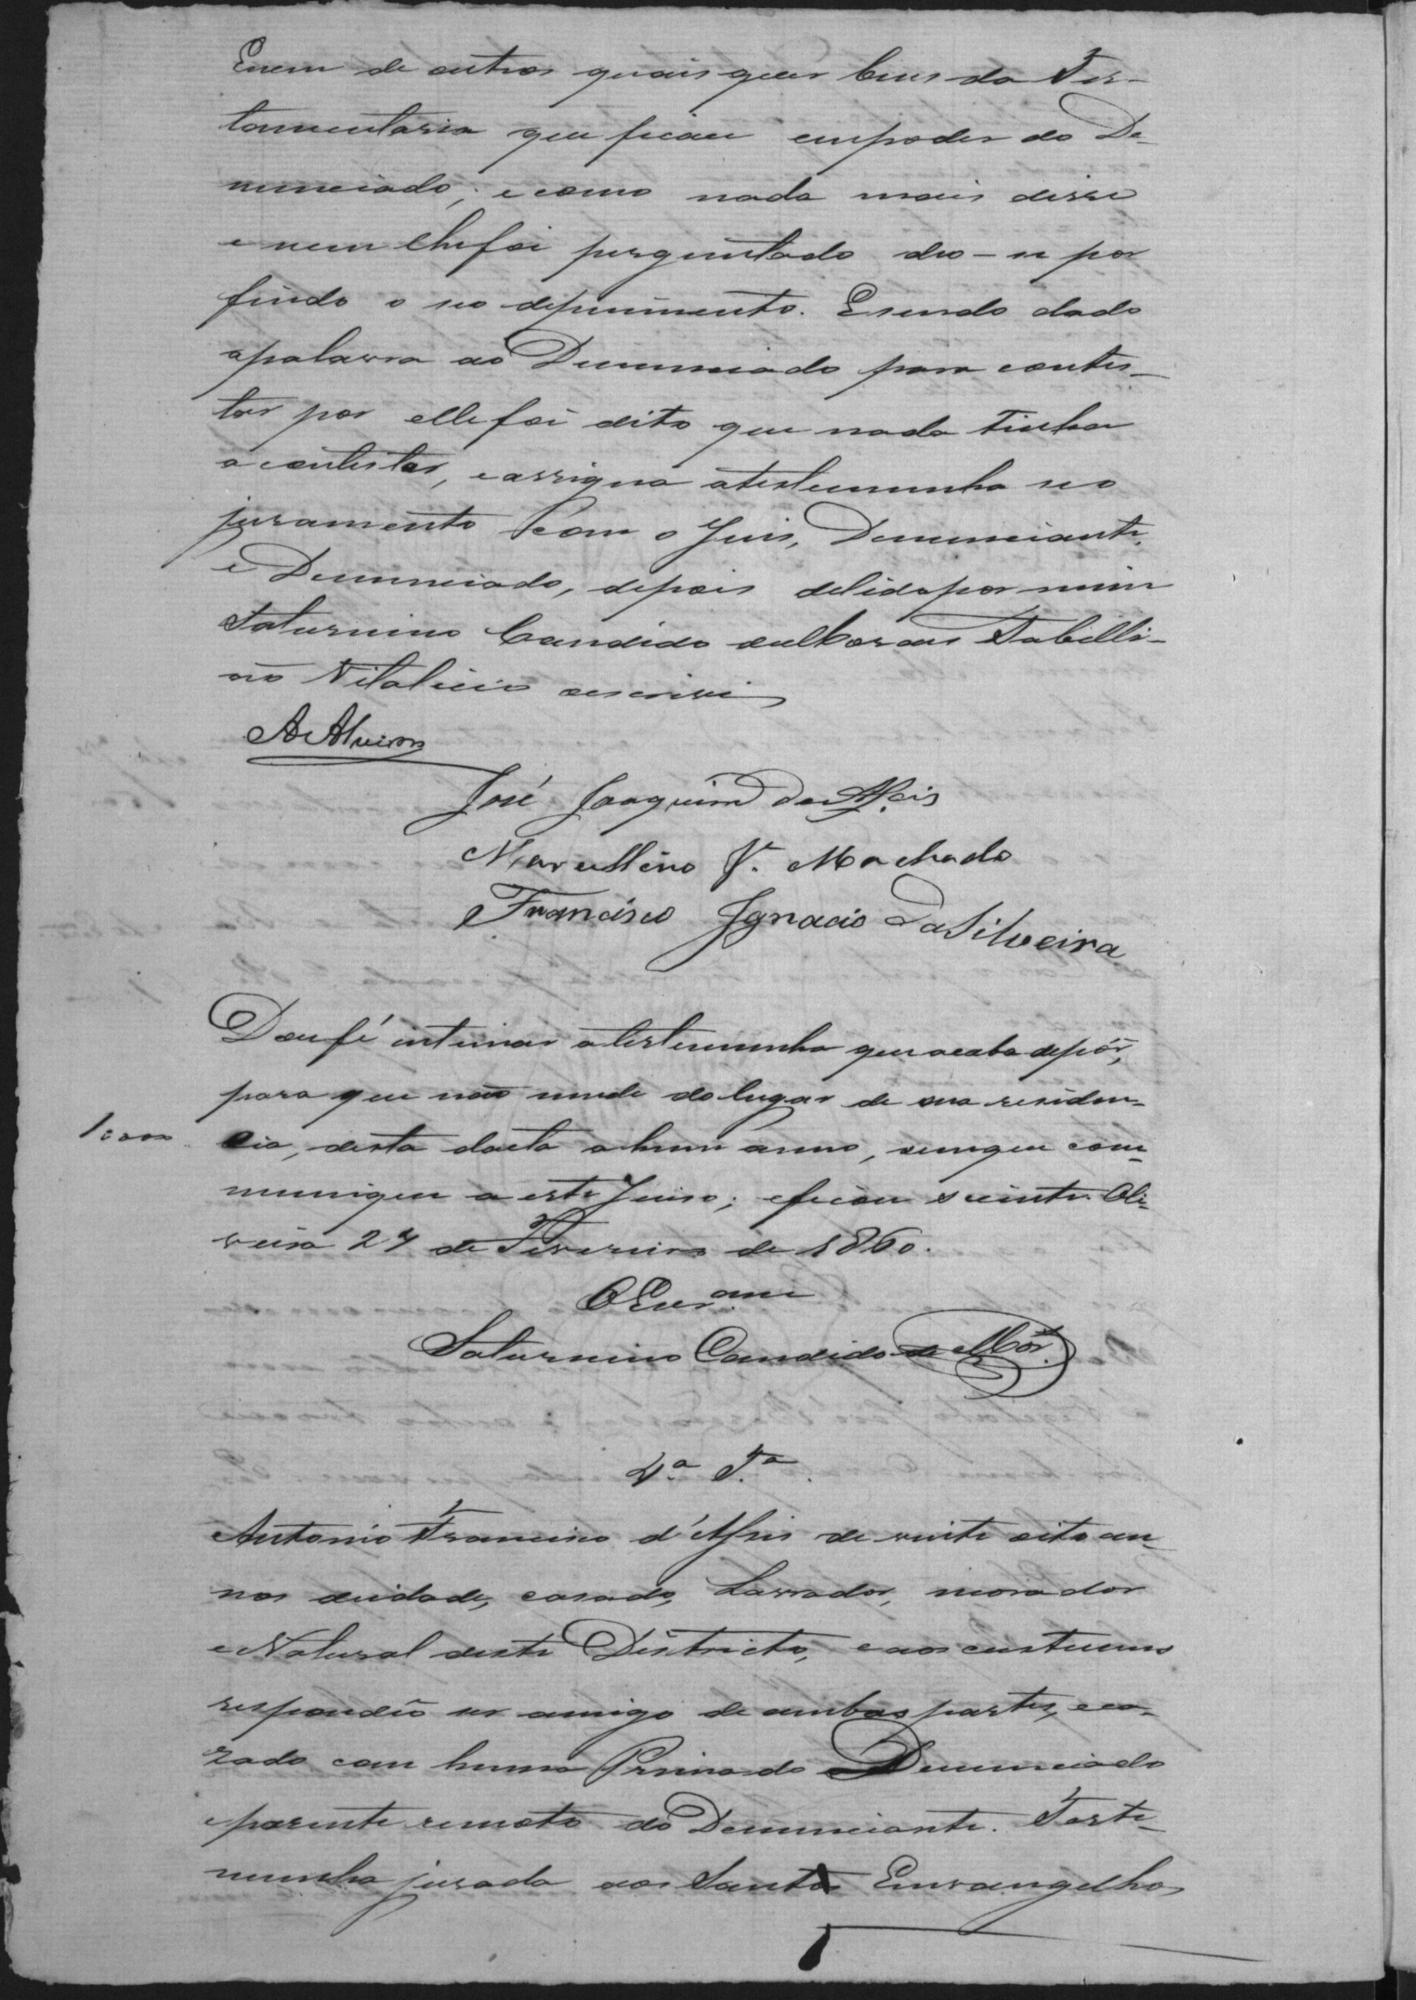 Enem de outros quaisquer bens da Tes-
tamentaria que ficou empoder do De-
nunciado; e como nada mais disse
e nem lhefoi perguntado deo-se por
findo o seo depuimento. Esendo dada
apalavra ao Denunciado para contes-
tar por ellefoi dito que nada tinha
a contestar, eassigna atestemunha seo
juramento com o Juis, Denunciante,
e Denunciado, depois delido por mim
Saturnino Candido de Moraes Tabelli-
ão Vitalicio oescrivi
A Alvim
José Joaquim de Assis
Marcellino V. Machado
Francisco Ignacio Da Silveira
Doufé intimar atestemunha que acaba depôr,
para que não mude do lugar de sua residen-
1000
cia, desta dacta ahum anno, semque com-
munique a este Juiso; eficou sciente. Oli-
veira 27 de Fevereiro de 1860.
OEscr.am
Saturnino Candido de Mor.
4.ª T.ª
Antonio Francisco d'Assis de vinte oito an-
nos deidade, casado, Lavrador, morador
e Natural deste Districto, eaos custumes
respondeo ser amigo de ambas partes, eca-
zado com huma Prima do Denunciado
eparente remoto do Denunciante. Teste-
munha jurada aos Santos Envangelhos